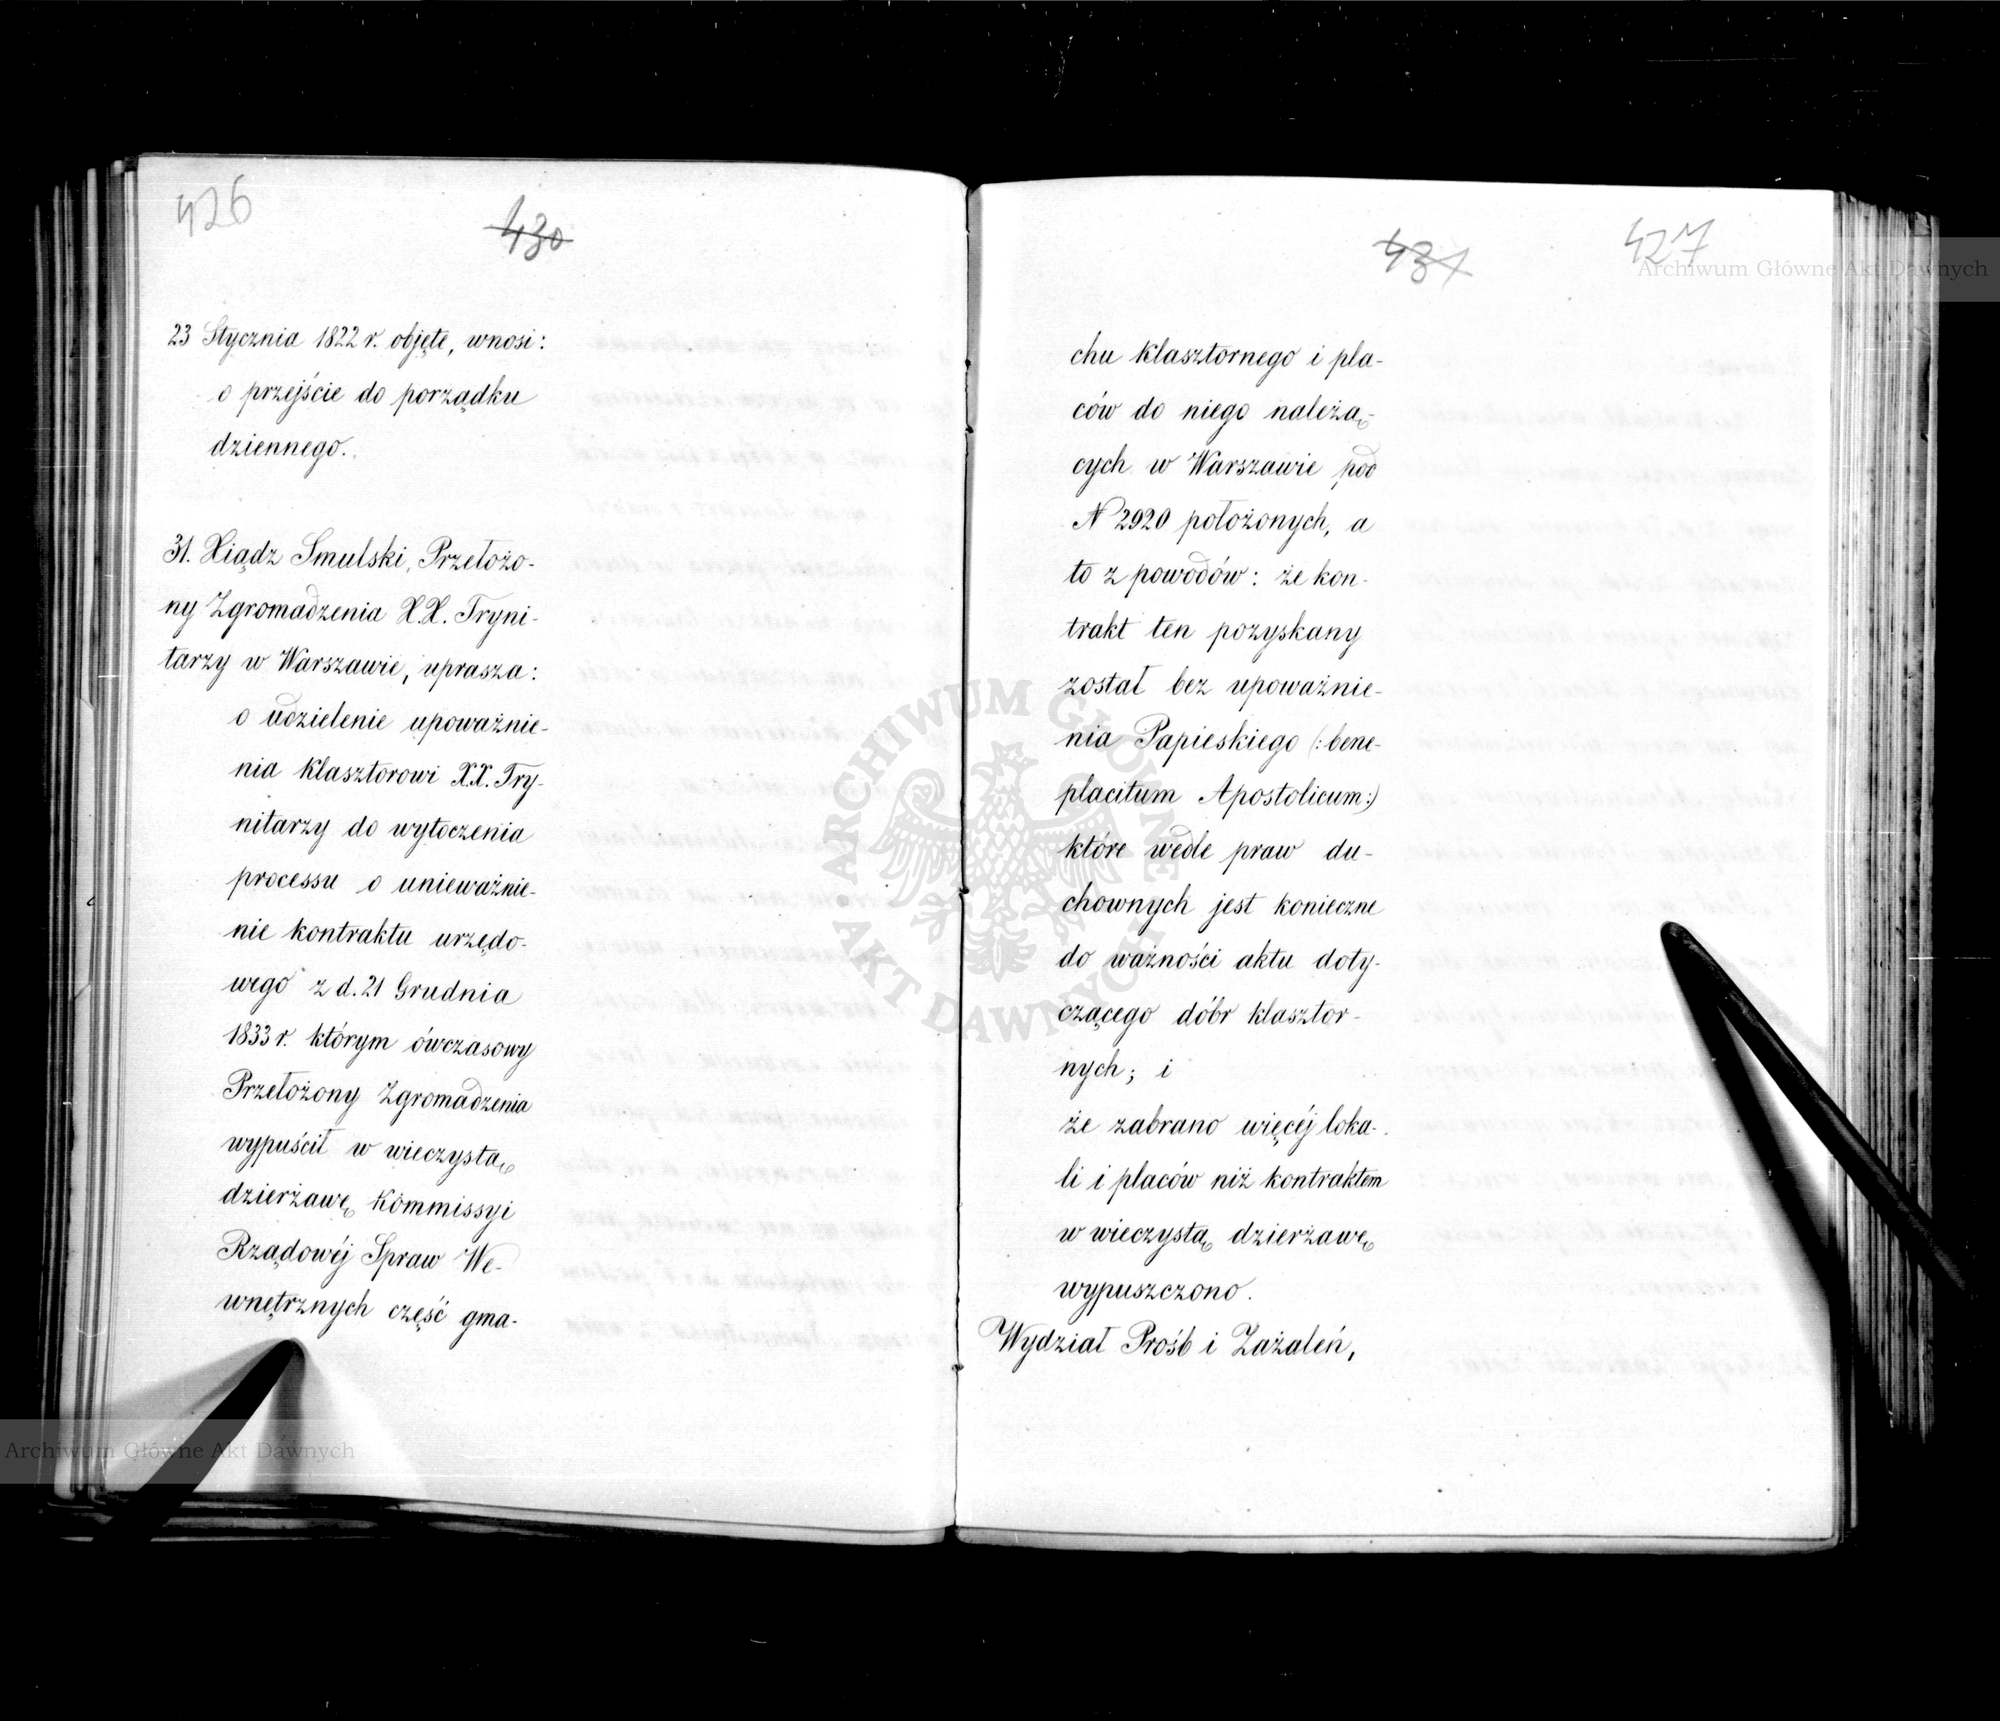 426
430
23 Stycznia 1822 r. objęte, wnosi:
o przejście do porządku
dziennego.
31. Xiądz Smulski, Przełożo-
ny Zgromadzenia X.X. Tryni-
tarzy w Warszawie, uprasza:
o udzielenie upoważnie-
nia klasztorowi X.X. Try-
nitarzy do wytoczenia
processu o unieważnie-
nie kontraktu urzędo-
wego z d. 21 Grudnia
1833 r. którym ówczasowy
Przełożony Zgromadzenia
wypuścił w wieczystą
dzierżawę Kommissyi
Rządowéj Spraw We-
wnętrznych część gma-
431
427
chu klasztornego i pla-
ców do niego należą-
cych w Warszawie pod
N 2920 położonych, a
to z powodów: że kon-
trakt ten pozyskany
został bez upoważnie-
nia Papieskiego (:bene-
placitum Apostolicum:)
które wedle praw du-
chownych jest konieczne
do ważności aktu doty-
czącego dóbr klasztor-
nych; i
że zabrano więcéj loka-
li i placów niż kontraktem
w wieczystą dzierżawę
wypuszczono.
Wydział Prośb i Zażaleń,
Archiwum Główne Akt Dawnych
ARCHIWUM GŁÓWNE
AKT DAWNYCH
Archiwum Główne Akt Dawnych